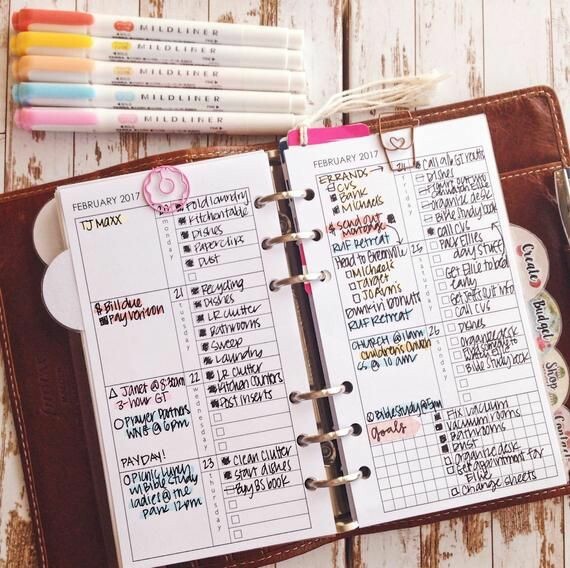 MILDLINER
MILDLINER
MILDLINER
MILDLINER
MILDLINER
FEBRUARY 2017
TJ Maxx
20
monday
Fold laundry
Kitchen table
Dishes
Paperclips
Dust
$ Bill due
Pay verizon
21
tuesday
Recycling
Dishes
LR clutter
Bathrooms
Sweep
Laundry
Janet @
3-hour GT
Prayer Partners
@ 6pm
22
wednesday
LR clutter
Kitchen counters
Post inserts
PAYDAY!
Picnic lunch
w/ Bible Study
ladies @ the
park 12pm
23
thursday
Clean clutter
Start dishes
Buy BS book
FEBRUARY 2017
ERRANDS
CVS
Bank
Michaels
$ send out
mortgage
RUF Retreat
24
friday
Call GT
Dishes
Figure out
Ellie
Organize desk
Bible Study book
call CVS
Head to Greenville
Michaels
Target
JoAnn's
Dunkin Donuts
RUF Retreat
25
saturday
Pack Ellie's
day stuff
Get Ellie to bed
early
Get info
call CVS
CHURCH @ 11am
children's church
@ 10 am
26
sunday
Dishes
Organize desk
Bible Study book
Bible Study @ 5pm
Goals
Fix vacuum
Vacuum rooms
Bathrooms
Dust
Organize desk
Set appointment for
Ellie
Change sheets
Create
Budget
Shop